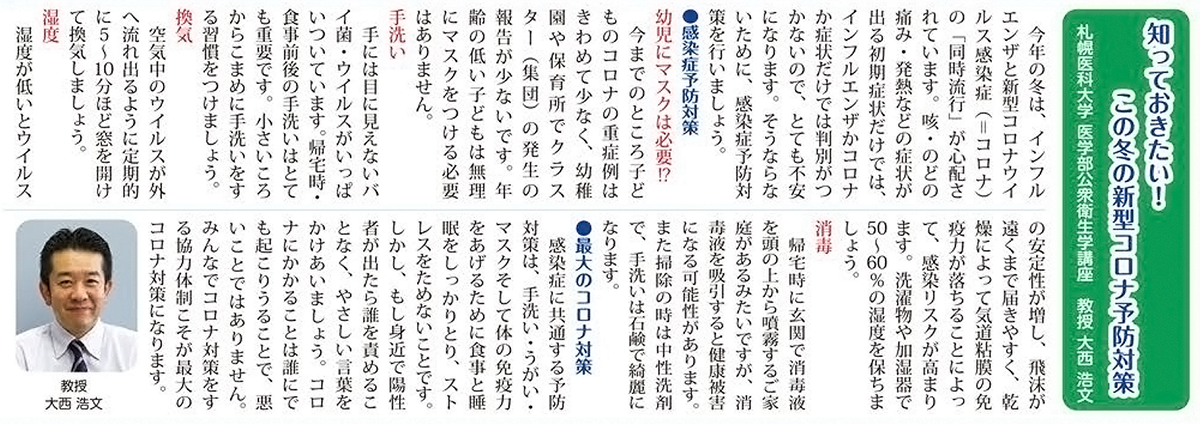 知っておきたい！
この冬の新型コロナ予防対策
札幌医科大学 医学部公衆衛生学講座　教授 大西 浩文
　今年の冬は、インフル
エンザと新型コロナウイ
ルス感染症（＝コロナ）
の「同時流行」が心配さ
れています。咳・のどの
痛み・発熱などの症状が
出る初期症状だけでは、
インフルエンザかコロナ
か症状だけでは判別がつ
かないので、とても不安
になります。そうならな
いために、感染症予防対
策を行いましょう。
●感染症予防対策
幼児にマスクは必要!?
　今までのところ子ど
ものコロナの重症例は
きわめて少なく、幼稚
園や保育所でクラス
ター（集団）の発生の
報告が少ないです。年
齢の低い子どもは無理
にマスクをつける必要
はありません。
手洗い
　手には目に見えないバ
イ菌・ウイルスがいっぱ
いついています。帰宅時・
食事前後の手洗いはとて
も重要です。小さいころ
からこまめに手洗いをす
る習慣をつけましょう。
換気
　空気中のウイルスが外
へ流れ出るように定期的
に５～10分ほど窓を開け
て換気しましょう。
湿度
　湿度が低いとウイルス
の安定性が増し、飛沫が
遠くまで届きやすく、乾
燥によって気道粘膜の免
疫力が落ちることによっ
て、感染リスクが高まり
ます。洗濯物や加湿器で
50～60％の湿度を保ちま
しょう。
消毒
　帰宅時に玄関で消毒液
を頭の上から噴霧するご家
庭があるみたいですが、消
毒液を吸引すると健康被害
になる可能性があります。
また掃除の時は中性洗剤
で、手洗いは石鹸で綺麗に
なります。
●最大のコロナ対策
　感染症に共通する予防
対策は、手洗い・うがい・
マスクそして体の免疫力
をあげるために食事と睡
眠をしっかりとり、スト
レスをためないことです。
しかし、もし身近で陽性
者が出たら誰を責めるこ
となく、やさしい言葉を
かけあいましょう。コロ
ナにかかることは誰にで
も起こりうることで、悪
いことではありません。
みんなでコロナ対策をす
る協力体制こそが最大の
コロナ対策になります。
教授
大西 浩文